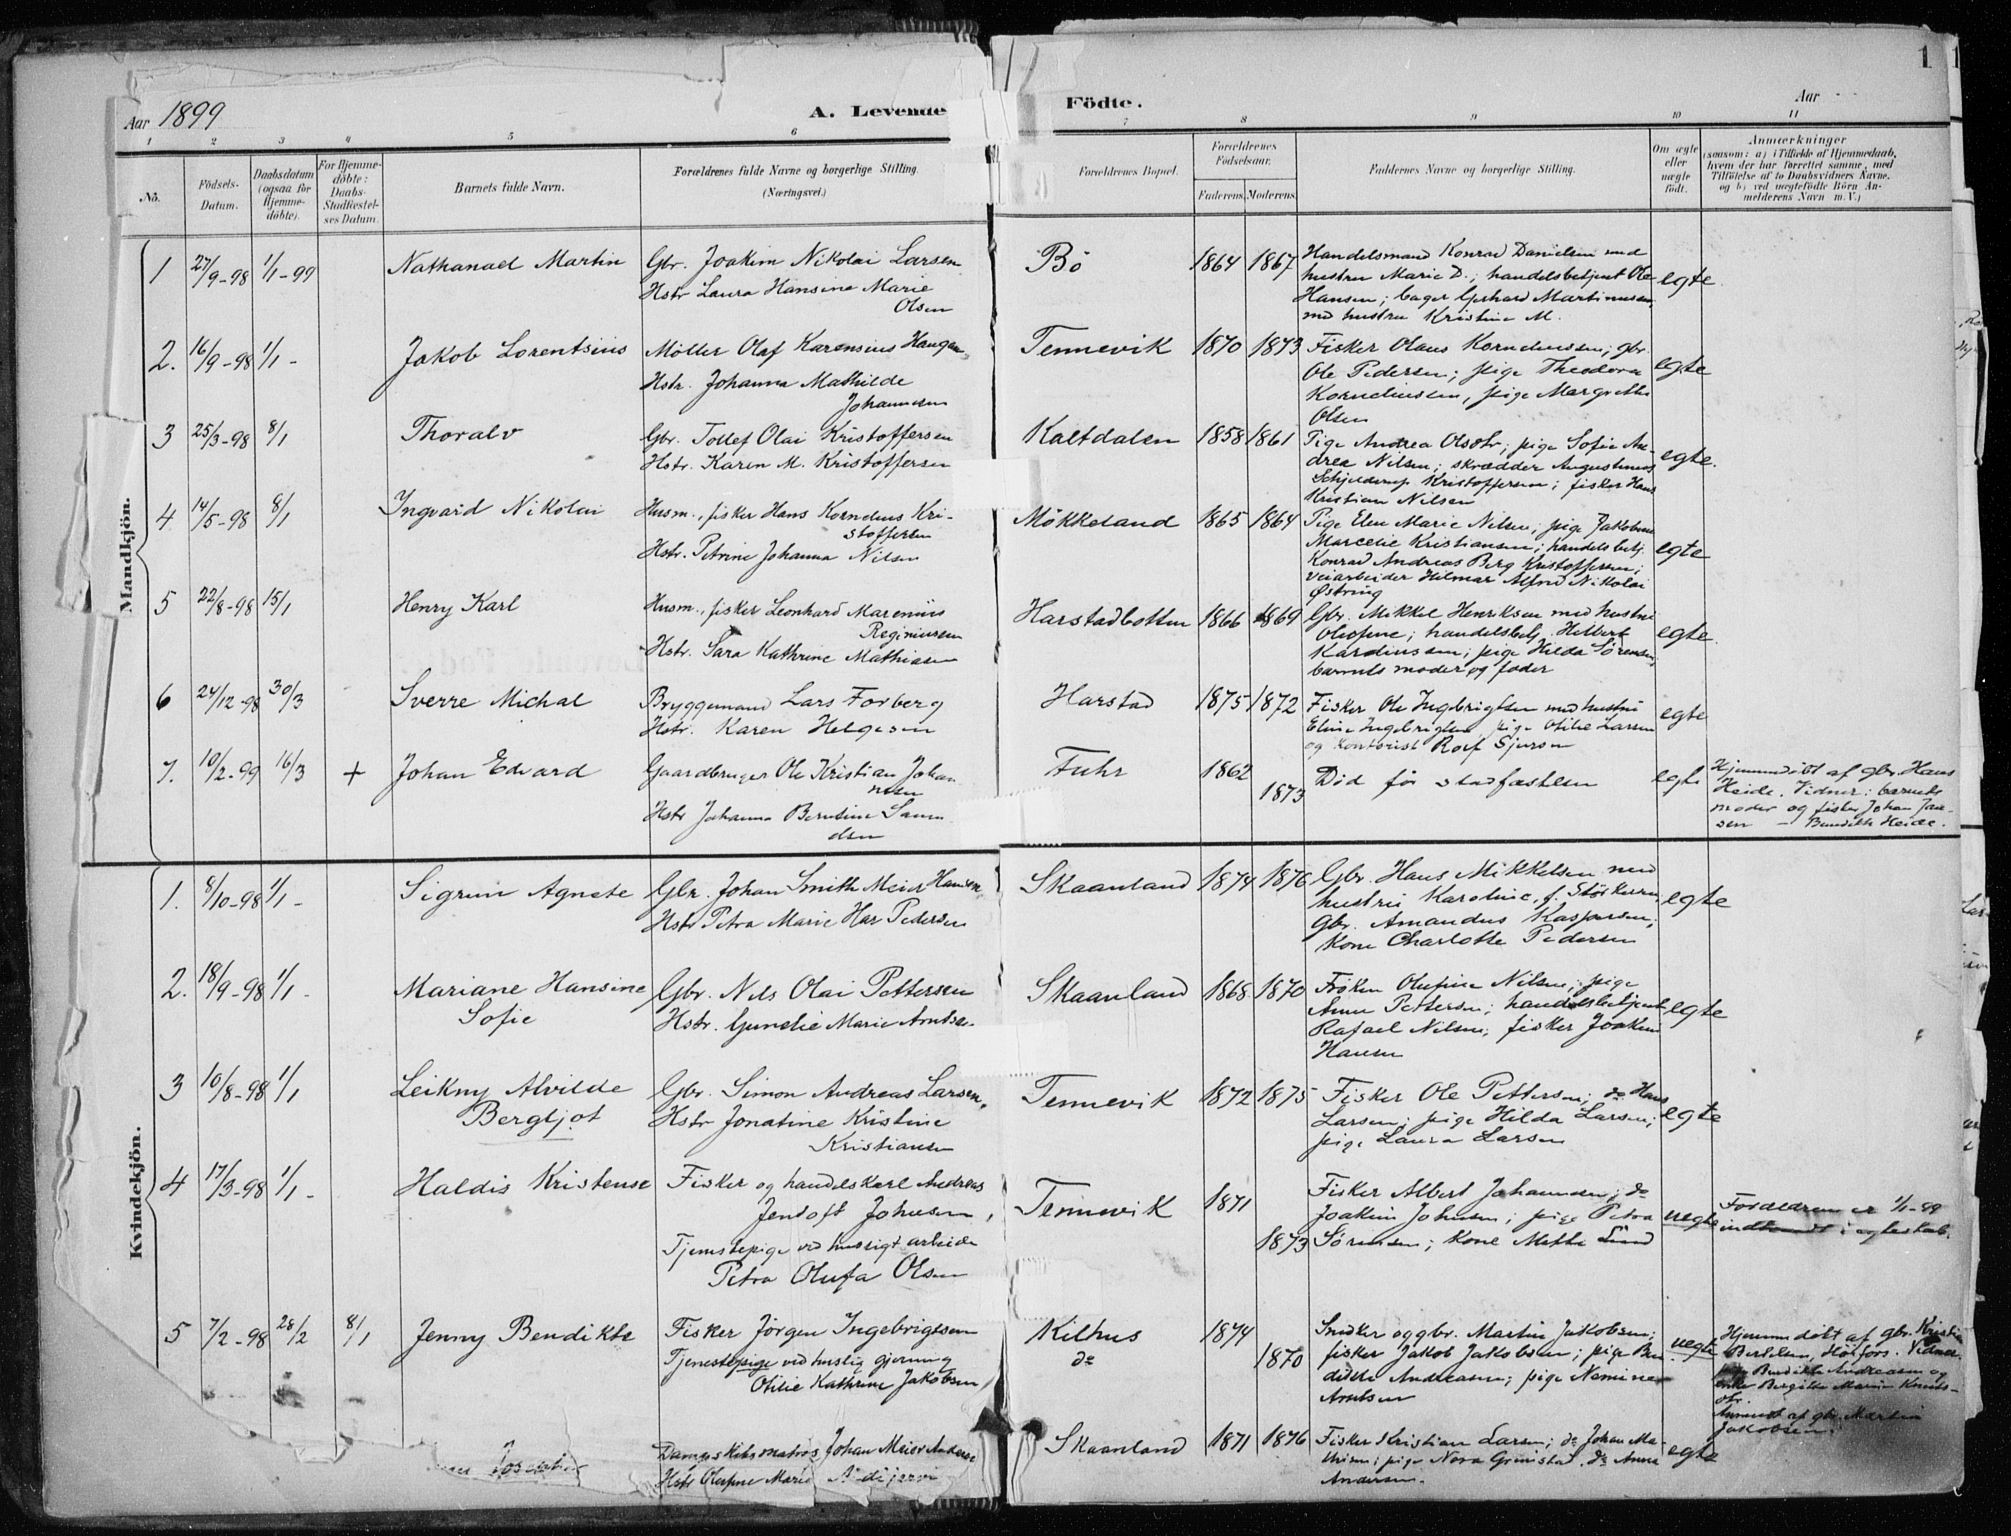 Aar 1899
A. Levende
Födte.
Aar
1
1 2 3 4 5 6 7 8 9 10 11
No.
Födsels-
Datum.
Daabsdatum
(ogsaa for
Hjemme-
döbte).
For Hjemme-
döbte:
Daabs-
Stadfæstel-
ses Datum.
Barnets fulde Navn.
Forældrenes fulde Navne og borgerlige Stilling.
(Næringsvei.)
Forældrenes Bopæl.
Forældrenes
Födselsaar.
Faderens Moderens
Faddernes Navne og borgerlige Stilling.
Om ægte
eller
uægte
födt.
Anmærkninger
(saasom: a) i Tilfælde af Hjemmedaab,
hvem der har forrettet samme, med
Tilföielse af to Daabsvidners Navne,
og b) ved uægtefödte Börn An-
melderens Navn m. V.)
Mandkjön.
1 27/9-98 1/1-99 Nathanael Martin
Gbr. Joakim Nikolai Larsen
Hstr Laura Hansine Marie
Olsen
Bö 1864 1867
Handelsmand Konrad Danielsen med
hustru Marie D.; handelsbetjent Ole
Hansen; bager Gerhard Martinusen
med hustru Kristine M.
egte
2. 16/9-98 1/1- Jakob Lorentsius
Møller Olaf Karensius Haugen
Hstr. Johanna Mathilde
Johannesen
Tennevik 1870 1873
Fisker Olaus Korneliussen; gbr.
Ole Pedersen; pige Theodora
Korneliussen, pige Margrethe
Olsen
egte
3 25/3-98 8/1 Thoralv
Gbr. Tollef Olai Kristoffersen
Hstr. Karen M. Kristoffersen
Kaltdalen 1858 1861
Pige Andrea Olsdtr; pige Sofie An-
drea Nilsen; skrædder Augustinus
Schjelderup Kristoffersen; fisker Hans
Kristian Nilsen
egte.
4 14/5-98 8/1 Ingvard Nikolai
Husm., fisker Hans Kornelius Kri-
stoffersen
Hstr. Petrine Johanna Nilsen
Møkkeland 1865 1864
Pige Elen Marie Nilsen; pige Jakobine
Marcelie Kristiansen; handelsbetj.
Konrad Andreas Berg Kristoffersen;
veiarbeider Hilmar Alfred Nikolai
Østring
egte
5 22/8-98 15/1 Henry Karl
Husm., fisker Leonhard Marenius
Reginiusen
Hstr. Sara Kathrine Mathiasen
Harstadbotten 1866 1869
Gbr. Mikkel Henriksen med hustru
Olufine; handelsbetj. Hilbert
Kardiussen; pige Hilda Sørensen,
barnets moder og fader
egte.
6 24/12-98 30/3 Sverre Michal
Bryggemand Lars Forberg
Hstr. Karen Helgesen
Harstad 1875 1872
Fisker Ole Ingebrigtsen med hustru
Eline Ingebrigtsen, pige Otilie Larsen
og kontorist Rolf Sjursen
egte
7. 10/2-99 16/3 + Johan Edvard
Gaardbruger Ole Kristian Johan
nesen
Hstr Johanna Berntine Samu
elsen
Fuhr 1862
1873
Död før stadfæstelsen
egte
Hjemmedöbt af gbr. Hans
Heide. Vidner: barnets
moder og fisker Johan Jan-
sen – Bendikte Heide.
Kvindekjön.
1. 8/10-98 1/1- Sigrun Agnete
Gbr. Johan Smith Meier Hansen
Hstr Petra Marie Har Pedersen
Skaanland 1874 1876
Gbr. Hans Mikkelsen med
hustru Karoline, f. Størkersen,
gbr. Amandus Kaspersen,
Kone Charlotte Pedersen
egte
2. 18/9-98 1/1- Mariane Hansine
Sofie
Gbr. Nils Olai Pettersen
Hstr. Gunelie Marie Arntsen.
Skaanland 1868 1870
Frøken Olufine Nilsen; pige
Anna Pettersen; handelsbetjent
Rafael Nilsen, fisker Joakim
Hansen
egte
3 10/8-98 1/1 Leikny Alvilde
Bergljot
Gbr. Simon Andreas Larsen,
Hstr Jonatine Kristine
Kristiansen
Tennevik 1872 1875
Fisker Ole Pettersen; do Hans
Larsen; pige Hilda Larsen;
pige Laura Larsen
egte
4 17/3-98 1/1- Haldis Kristense
Fisker og handelskarl Andreas
Jentoft Johnsen,
Tjenstepige ved husligt arbeide
Petra Olufa Olsen
Tennevik 1871
1873
Fisker Albert Johannesen; do
Joakim Johnsen; pige Petra
Sørensen; Kone Mette Lund
uegte
Foreldrene er 1/1-99
indtraadt i egteskab.
5 7/2-98 28/2 8/1 Jenny Bendikte
Fisker Jørgen Ingebrigtsen
Tjenestepige ved huslig gjerning
Otilie Kathrine Jakobsen
Kilhus
do
1874
1870
Snedker og gbr. Martin Jakobsen;
fisker Jakob Jakobsen; pige Ben
dikte Andreasen; pige Nemine
Arntsen
uegte
Hjemmedöbt af gbr. Kristian
Bertelsen, Hølfors. Vidner
Bendikte Andreasen og
enke Bergitte Marie Knuds-
dtr.
Anmeldt af gbr. Martin
Jakobsen.
Dampskibsmatros Johan Meier Andersen
Hstr Olufine Marie
Skaanland 1871 1876
Fisker Kristian Larsen; do Johan Ma-
thisen; pige Nora Grimstad, do Anna
Andersen.
egte